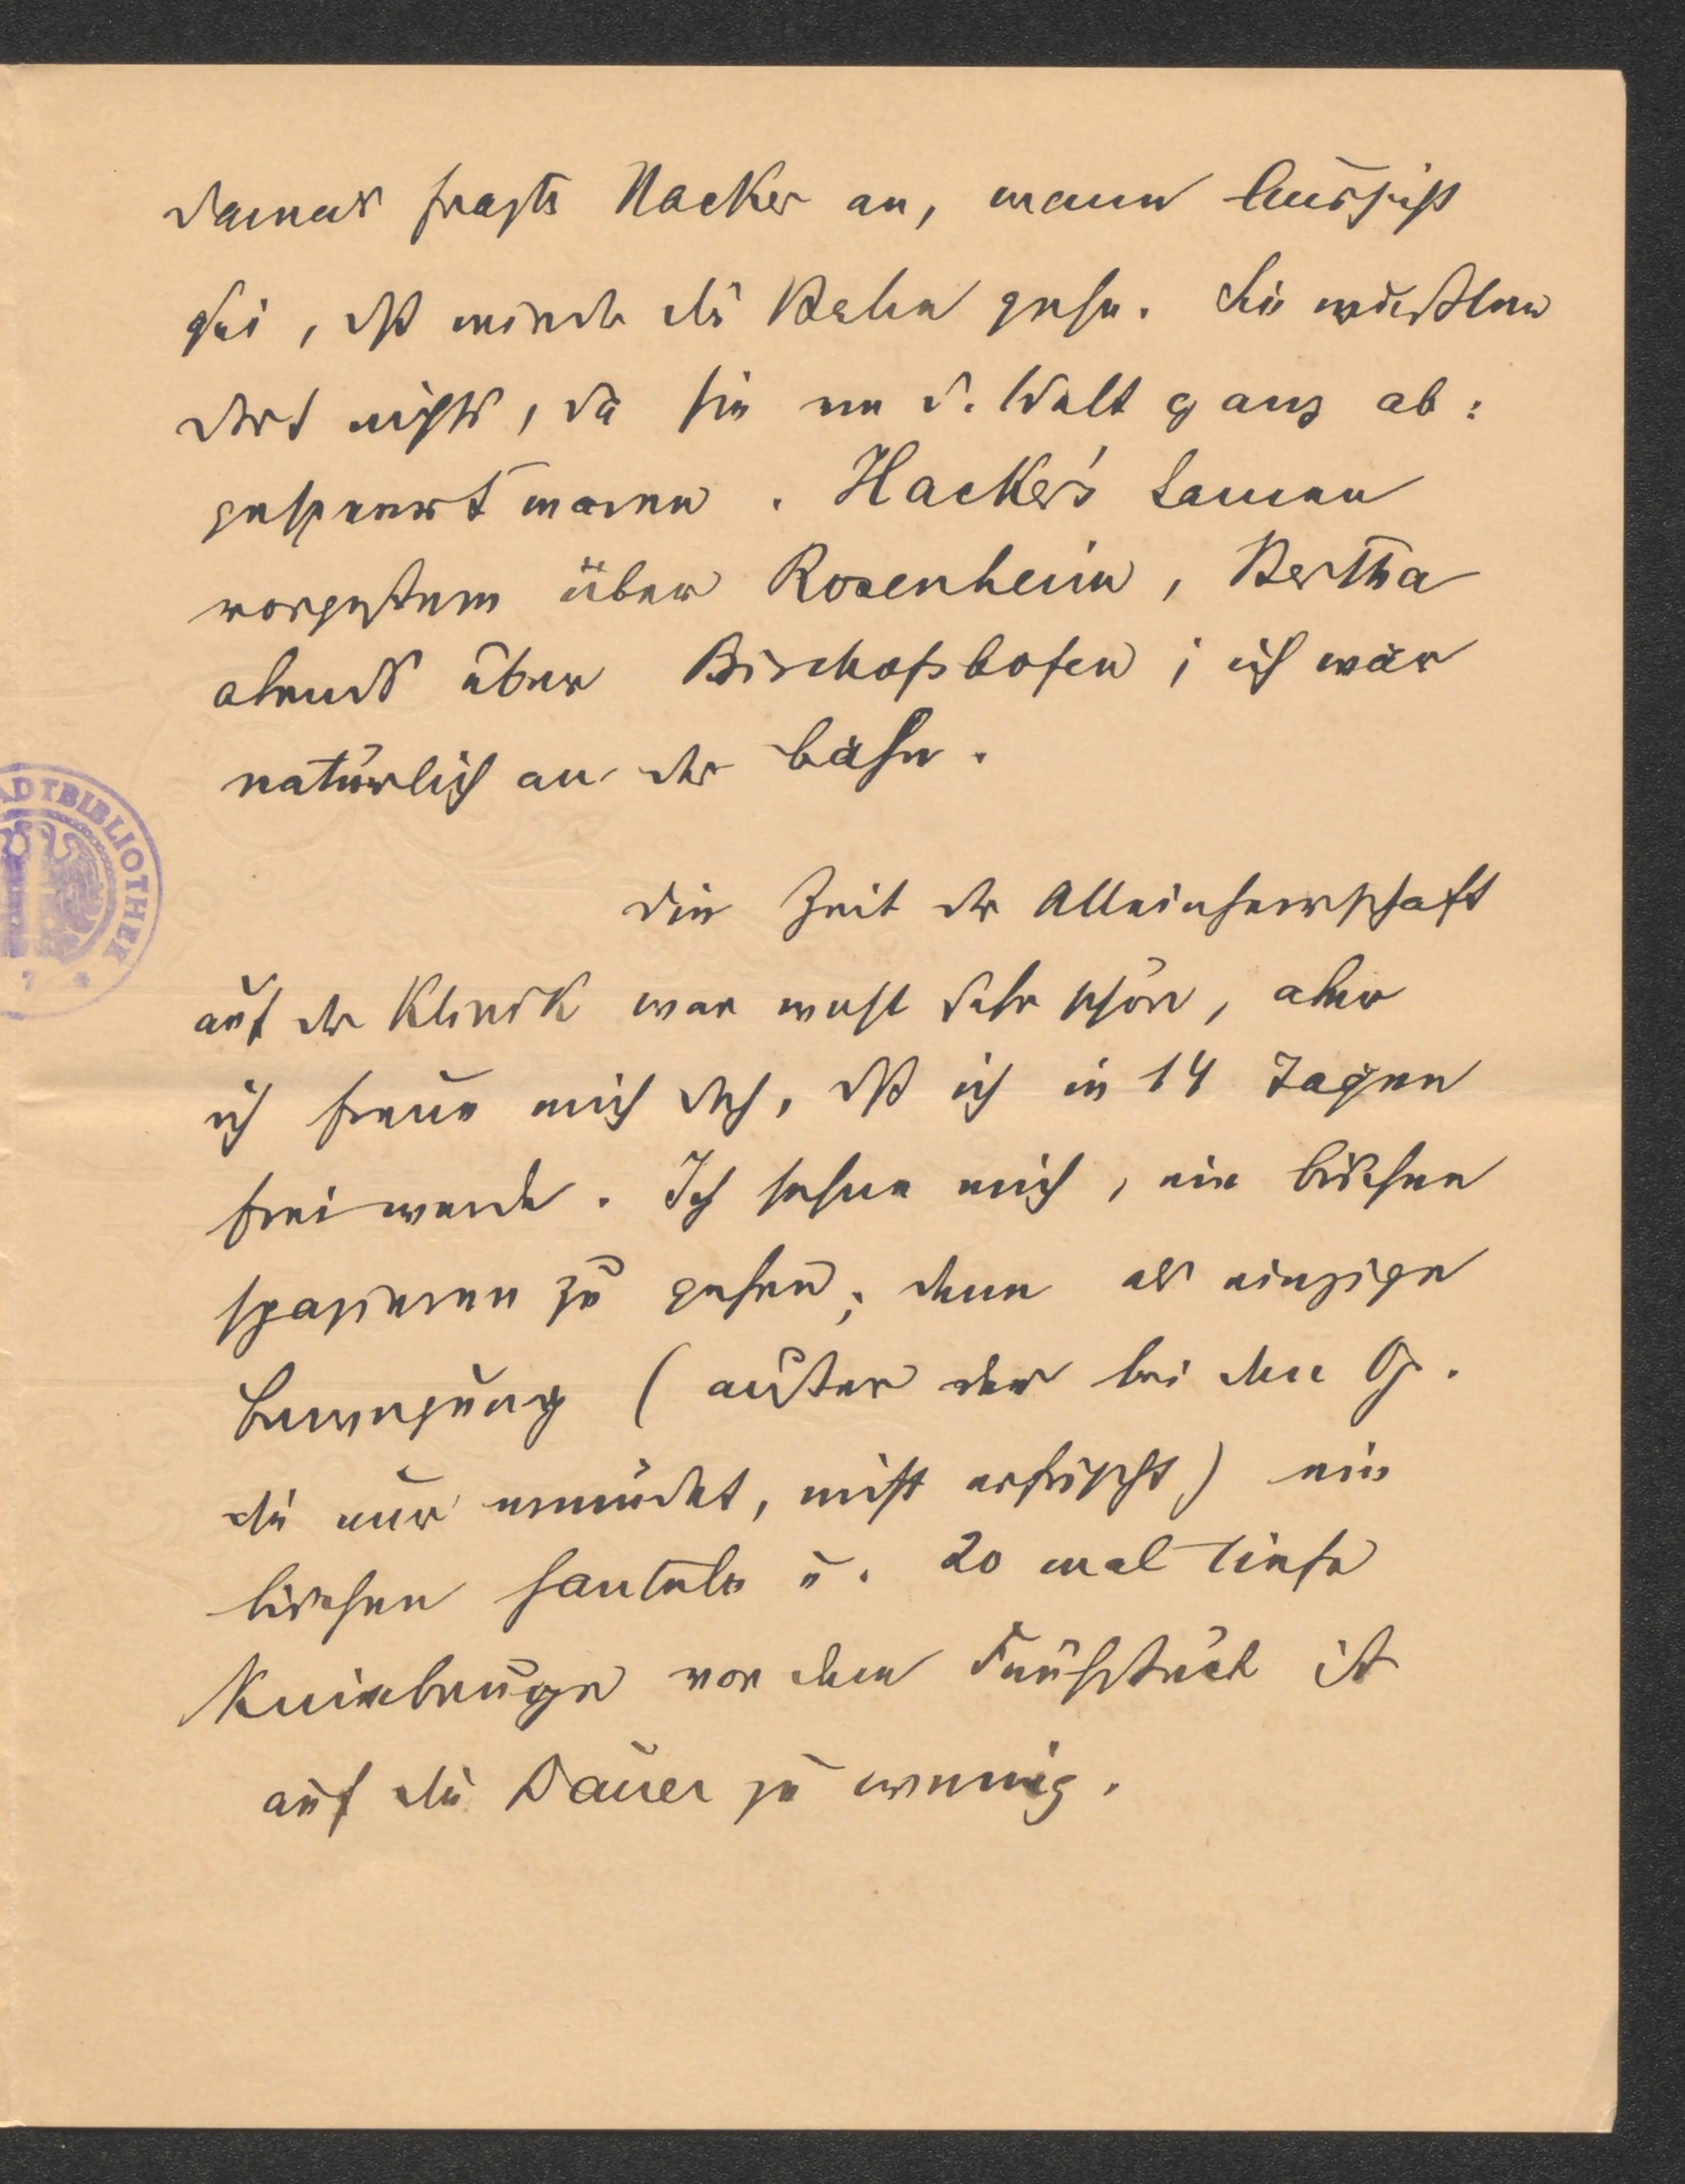 damals fragte Hacker an, wann Aussicht
sei, dß wieder die Bahn gehe. Sie wußten
dort nichts, da sie von d. Welt ganz ab:
gesperrt waren. Hacker's kamen
vorgestern über Rosenheim, Bertha
abends über Bischofshofen; ich war
natürlich an der Bahn.
Die Zeit der Alleinherrschaft
auf der Klinik war wohl sehr schön, aber
ich freue mich doch, dß ich in 14 Tagen
frei werde. Ich sehne mich, ein bischen
spazieren zu gehen; denn als einzige
Bewegung (außer der bei den Op.
die nur ermüdet, nicht erfrischt) ein
bischen hanteln u. 20 mal tiefe
Kniebeuge vor dem Frühstück ist
auf die Dauer zu wenig.
ADTBIBLIOTHEK
7 *